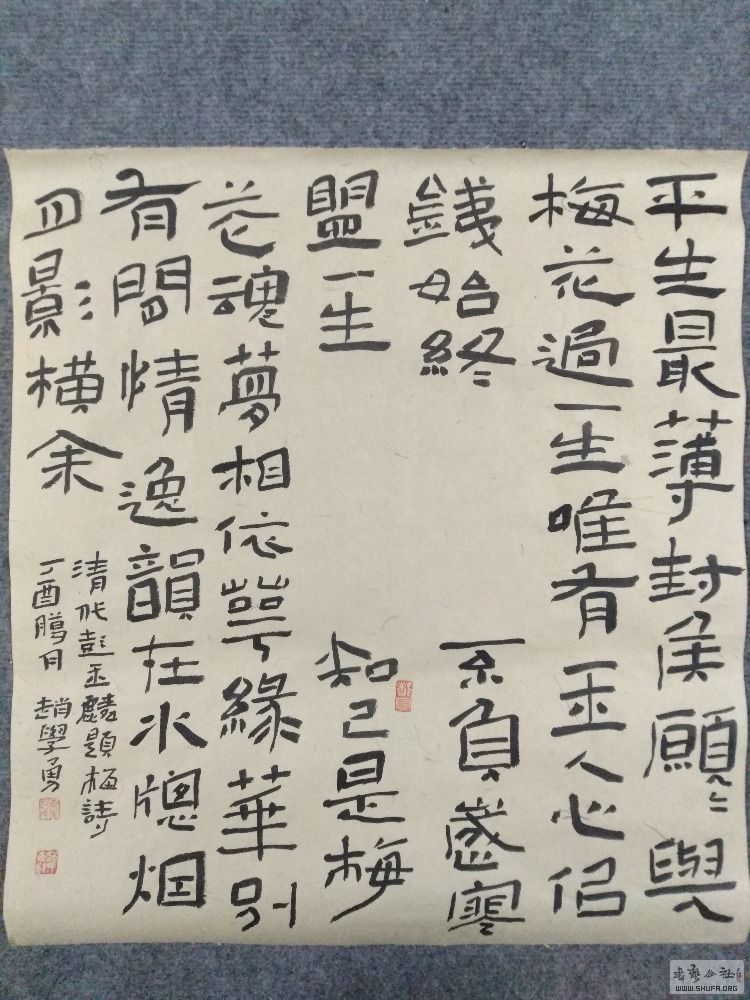 平生最薄封侯願〻與
梅花過一生唯有玉人心佀
鐵始終不負歲寒
盟一生知己是梅
花魂夢相依萼緣華別
有閒情逸韻在水牕烟
月影橫余
清代彭玉麟題梅詩
丁酉臘月 趙學勇
書藝公社
WWW.SHUFA.ORG